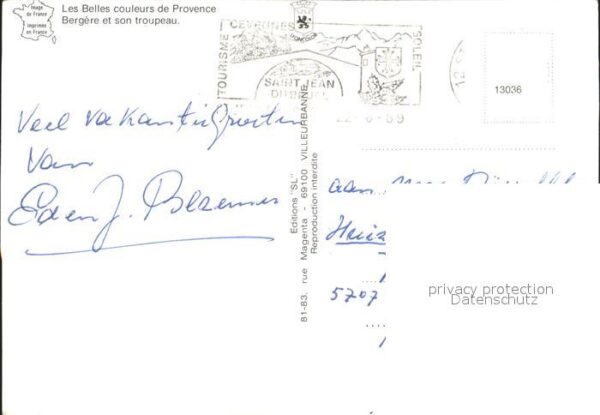 Image
de France
Imprimée
en France
Les Belles couleurs de Provence
Bergère et son troupeau.
TOURISME
CEVENNES
SOLEIL
SAINT JEAN
DU GARD
13036
Veel vakantiegroeten
van
Ed en J.
Editions "SL"
81-83, rue Magenta - 69100 VILLEURBANNE
Reproduction interdite
aan
5707
privacy protection
Datenschutz